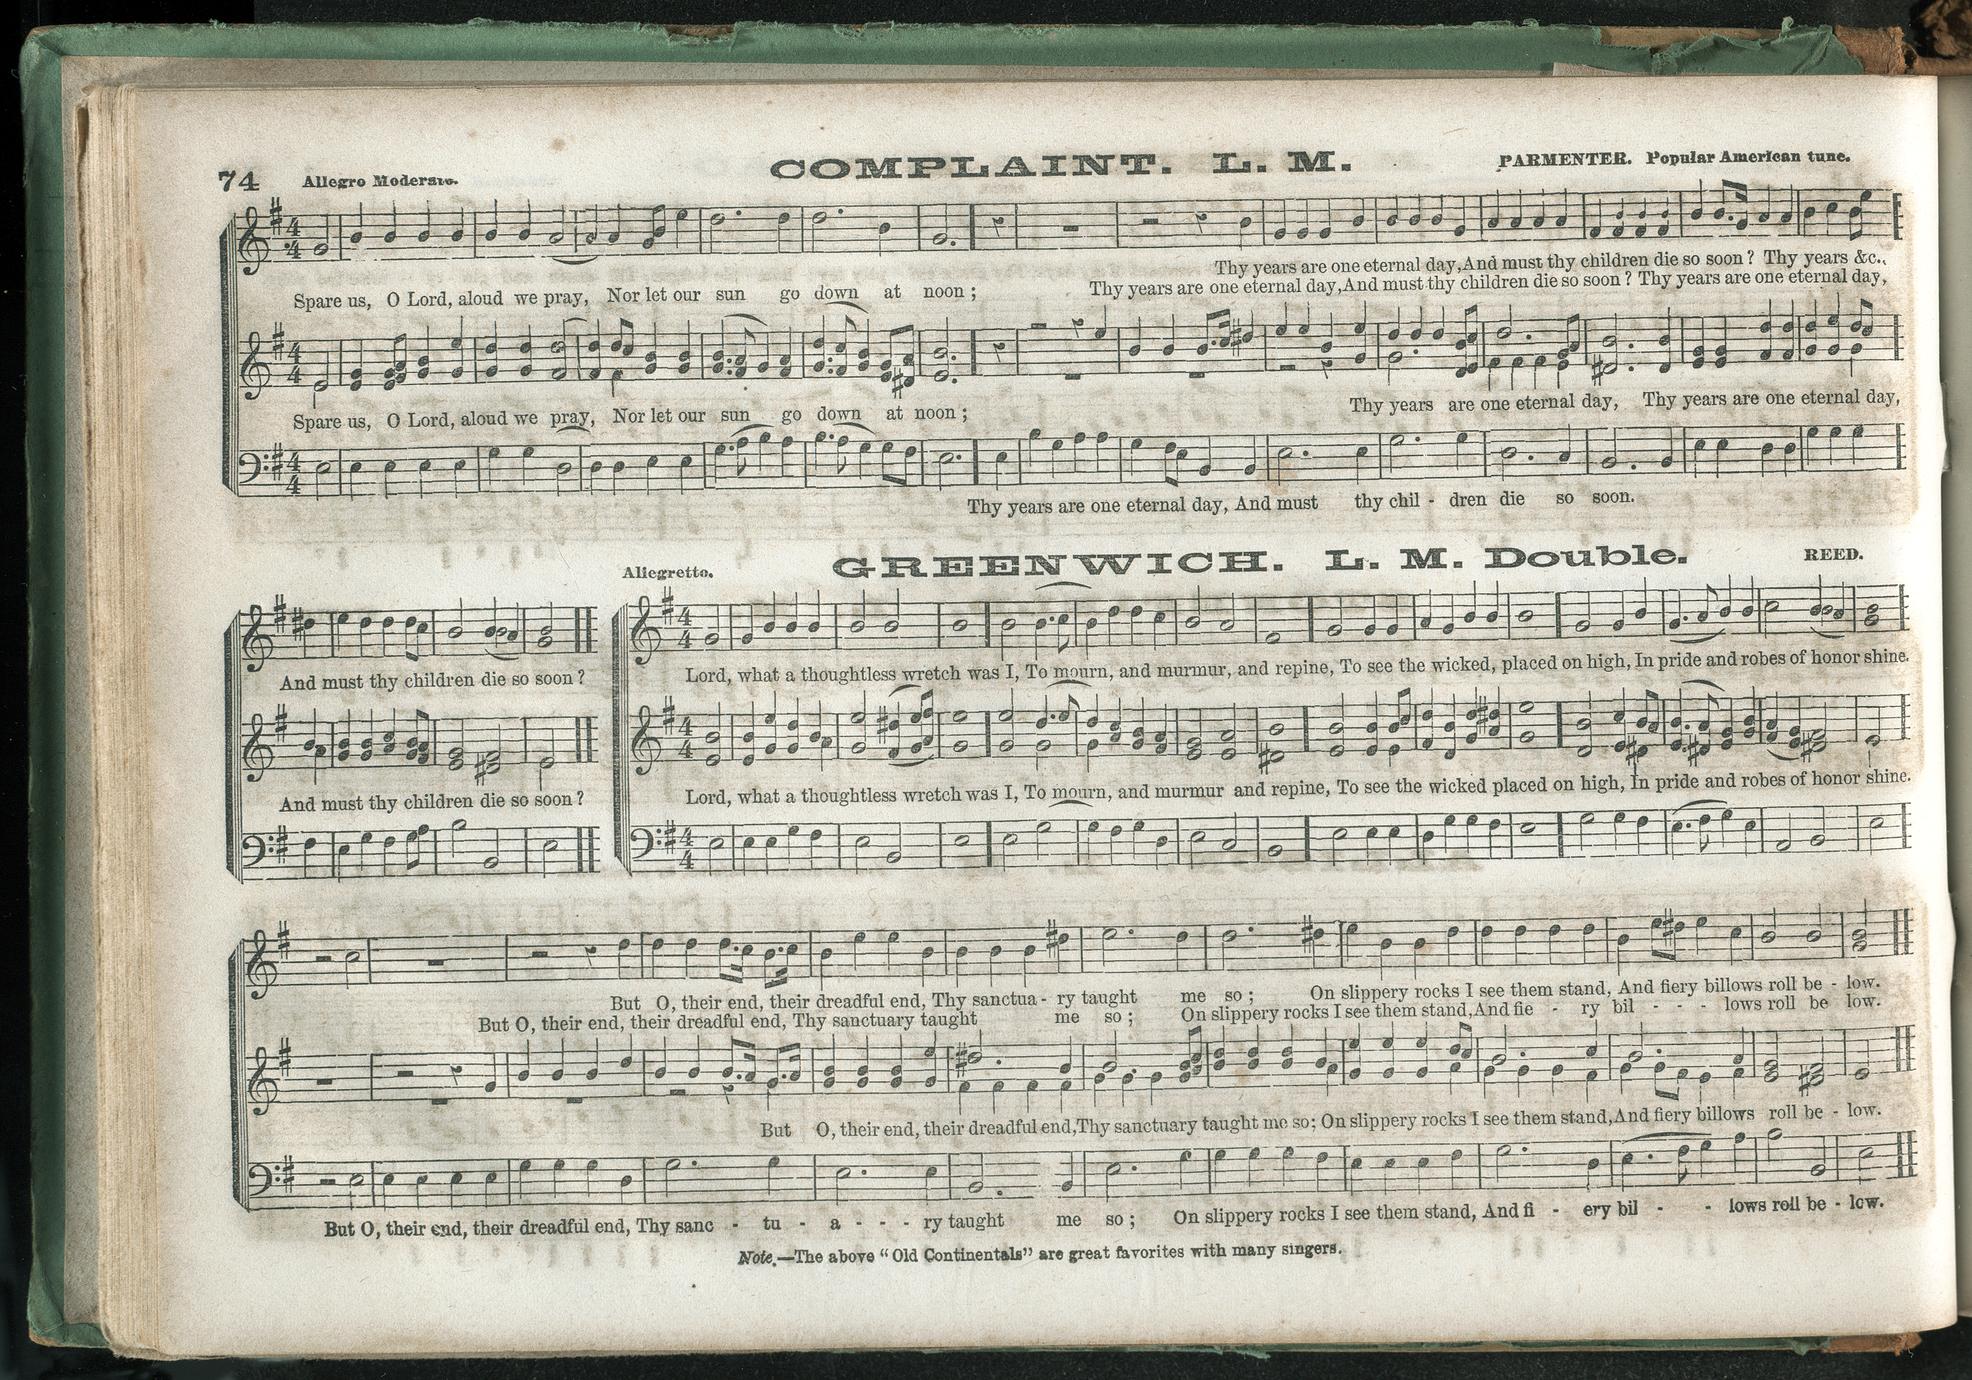 74 Allegro Moderato. COMPLAINT. L. M. PARMENTER. Popular American tune.
4 4
Thy years are one eternal day, And must thy children die so soon? Thy years &c.,
Spare us, O Lord, aloud we pray, Nor let our sun go down at noon; Thy years are one eternal day, And must thy children die so soon? Thy years are one eternal day,
4 4
Spare us, O Lord, aloud we pray, Nor let our sun go down at noon; Thy years are one eternal day, Thy years are one eternal day,
4 4
Thy years are one eternal day, And must thy chil - dren die so soon.
Allegretto. GREENWICH. L. M. Double. REED.
4 4
And must thy children die so soon? Lord, what a thoughtless wretch was I, To mourn, and murmur, and repine, To see the wicked, placed on high, In pride and robes of honor shine.
4 4
And must thy children die so soon? Lord, what a thoughtless wretch was I, To mourn, and murmur and repine, To see the wicked placed on high, In pride and robes of honor shine.
4 4
But O, their end, their dreadful end, Thy sanctua - ry taught me so; On slippery rocks I see them stand, And fiery billows roll be - low.
But O, their end, their dreadful end, Thy sanctuary taught me so; On slippery rocks I see them stand, And fie - ry bil - - - lows roll be low.
But O, their end, their dreadful end, Thy sanctuary taught me so; On slippery rocks I see them stand, And fiery billows roll be - low.
But O, their end, their dreadful end, Thy sanc - tu - a - - - ry taught me so; On slippery rocks I see them stand, And fi - ery bil - - lows roll be - low.
Note.—The above "Old Continentals" are great favorites with many singers.